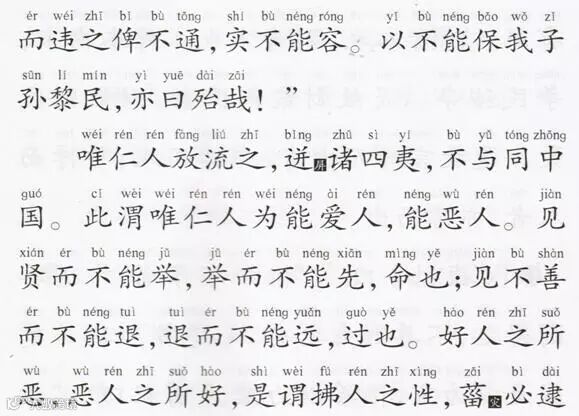 ér wéi zhī bǐ bù tōng shí bù néng róng yǐ bù néng bǎo wǒ zǐ
而违之俾不通，实不能容。以不能保我子
sūn lí mín yì yuē dài zāi
孙黎民，亦曰殆哉！”
wéi rén rén fàng liú zhī bìng zhū sì yí bù yǔ tóng zhōng
唯仁人放流之，迸诸四夷，不与同中
guó cǐ wèi wéi rén rén wéi néng ài rén néng wù rén jiàn
国。此渭唯仁人为能爱人，能恶人。见
xián ér bù néng jǔ jǔ ér bù néng xiān mìng yě jiàn bù shàn
贤而不能举，举而不能先，命也；见不善
ér bù néng tuì tuì ér bù néng yuǎn guò yě hào rén zhī suǒ
而不能退，退而不能远，过也。好人之所
wù wù rén zhī suǒ hào shì wèi fú rén zhī xìng zāi bì dài
恶，恶人之所好，是谓拂人之性，菑灾必逮